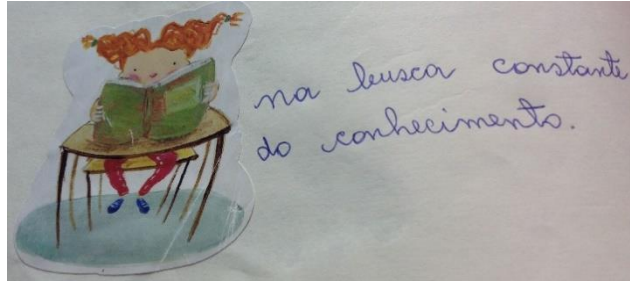 na busca constante
do conhecimento.